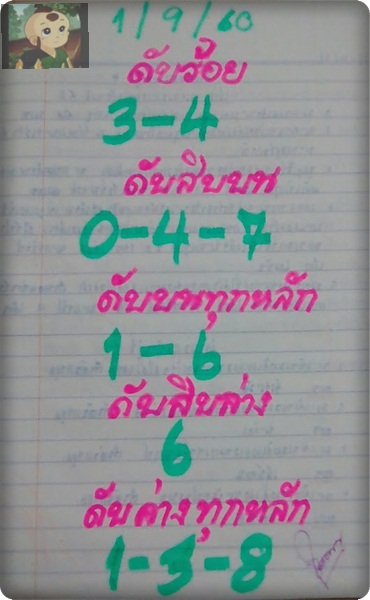 1/9/60
ดับร้อย
3-4
ดับสิบบน
0-4-7
ดับบนทุกหลัก
1-6
ดับสิบล่าง
6
ดับล่างทุกหลัก
1-5-8